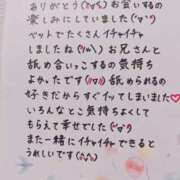 ありがとう(^○^) お会いするの
楽しみにしていました(^o^)
ベットでたくさんイチャイチャ
しましたね(//ω＼) お兄さんと
舐め合いっこするの気持ち
よかったです(//∀//) 舐められるの
好きだからすぐイッてしまいました♡
いろんなとこ気持ちよくして
もらえて幸せでした(^o^)
また一緒にイチャイチャできると
うれしいです(^^)